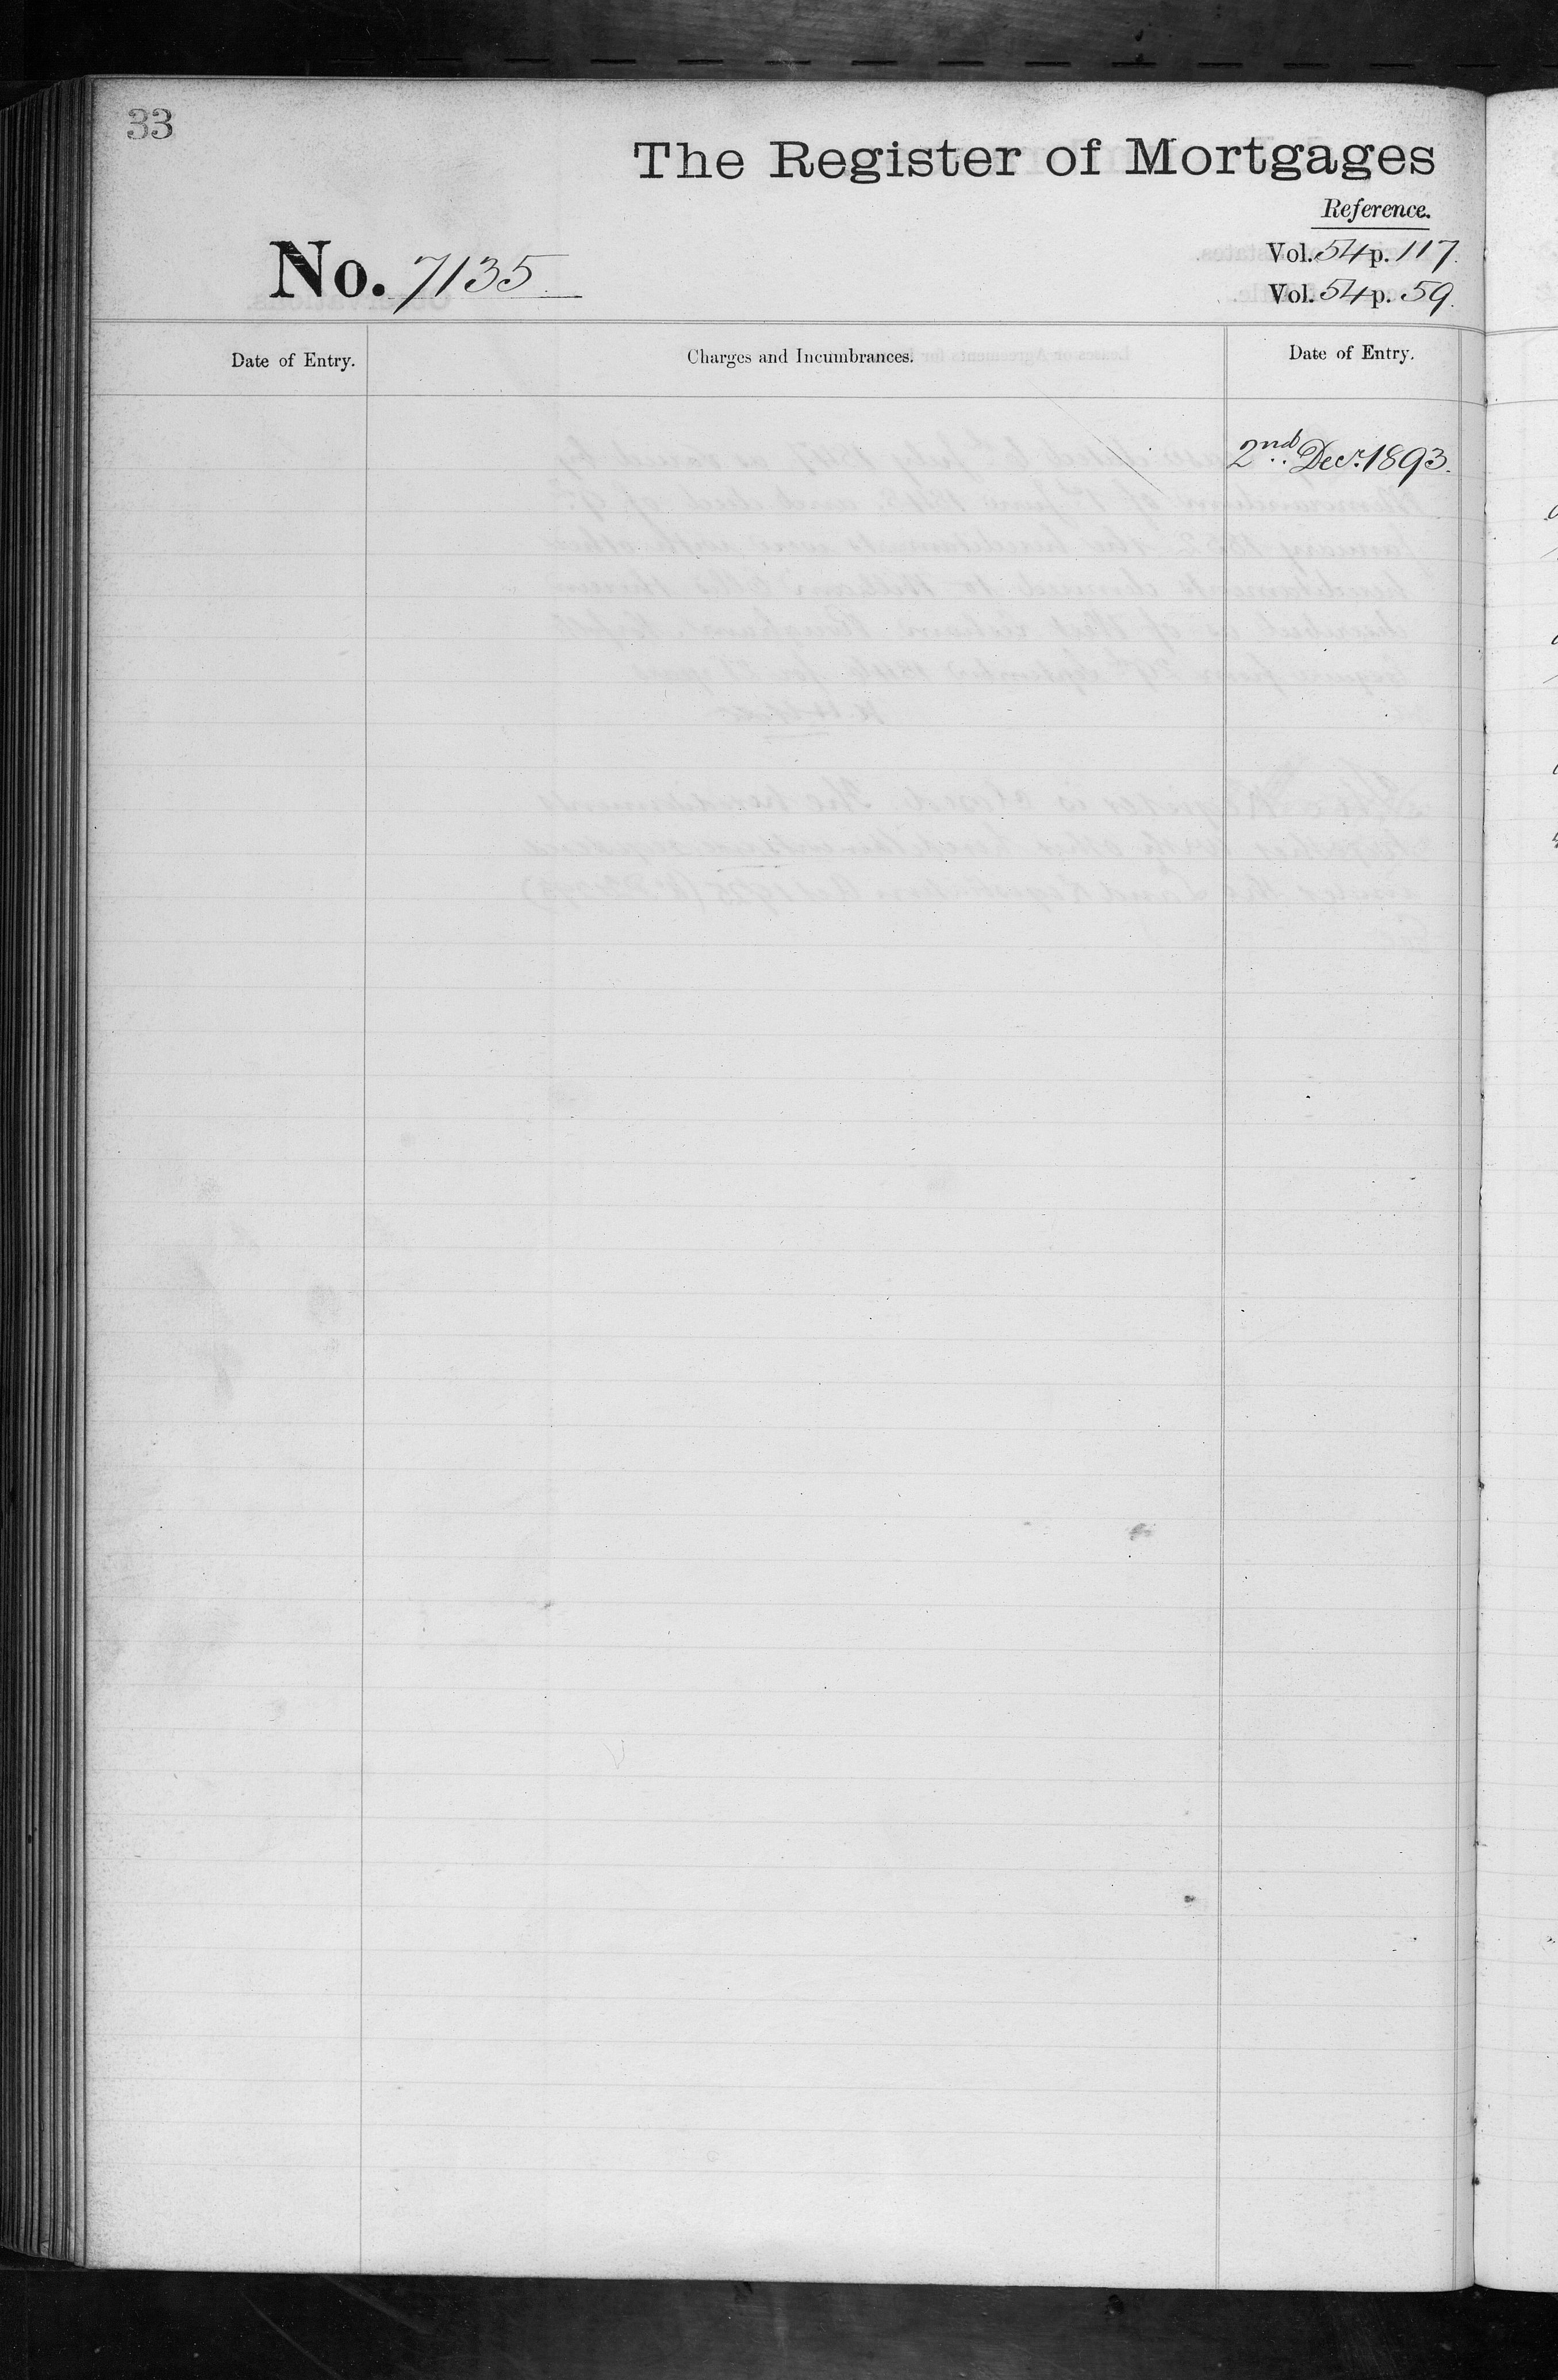 33
The Register of Mortgages
Reference.
No. 7135
Vol. 54 p. 117.
Vol. 54 p. 59.
Date of Entry. Charges and Incumbrances. Date of Entry.
2nd Decr. 1893.